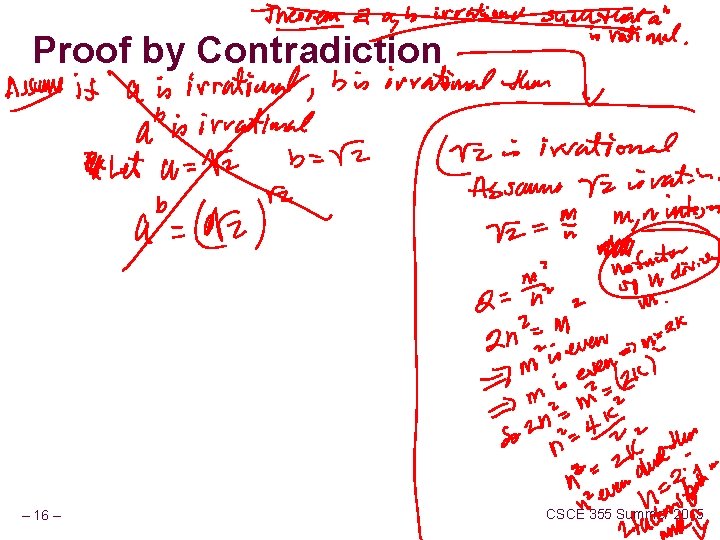 Theorem ∃ a, b irrational such that a^b
is rational.
Proof by Contradiction
Assume if a is irrational, b is irrational then
a^b is irrational
Let a = √2 b = √2
a^b = (√2)^√2
(√2 is irrational
Assume √2 is ratio
√2 = m/n m, n integ
no factor
of n divides
m.
2 = m²/n²
2n² = m²
⇒ m² is even
⇒ m is even ⇒ m = 2k
So 2n² = m² = (2k)²
n² = 4k²/2
n² = 2k²
n² even then
n = 2
– 16 –
CSCE 355 Summer 2015